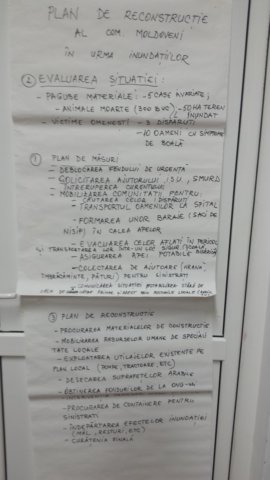 PLAN DE RECONSTRUCTIE
AL COM. MOLDOVENI
ÎN URMA INUNDATIILOR
② EVALUAREA SITUATIEI:
- PAGUBE MATERIALE: - 5 CASE AVARIATE;
- ANIMALE MOARTE (300 BUC) - 50 HA TEREN INUNDAT
- VICTIME OMENESTI - 3 DISPARUTI
- 10 OAMENI CU SIMPTOME
DE BOALĂ
① PLAN DE MĂSURI
- DEBLOCAREA FONDULUI DE URGENTĂ
- SOLICITAREA AJUTORULUI I.S.U., SMURD
- ÎNTRERUPEREA CURENTULUI
- MOBILIZAREA COMUNITATII PENTRU:
- CĂUTAREA CELOR 3 DISPARUTI
- TRANSPORTUL OAMENILOR LA SPITAL
- FORMAREA UNOR BARAJE (SACI DE
NISIP) ÎN CALEA APELOR
- EVACUAREA CELOR AFLATI ÎN PERICOL
SI TRANSPORTAREA LOR ÎNTR-UN LOC SIGUR (SCOALA)
- ASIGURAREA APEI POTABILE
- COLECTAREA DE AJUTOARE (HRANĂ,
ÎMBRĂCĂMINTE, PĂTURI) PENTRU SINISTRATI
COMUNICAREA SITUATIEI
③ PLAN DE RECONSTRUCTIE
- PROCURAREA MATERIALELOR DE CONSTRUCTIE
- MOBILIZAREA RESURSELOR UMANE DE SPECIALI
TATE LOCALE
- EXPLOATAREA UTILAJELOR EXISTENTE PE
PLAN LOCAL (POMPE, TRACTOARE, ETC)
- DESECAREA SUPRAFETELOR ARABILE
- OBTINEREA FONDURILOR DE LA ONG-uri
- PROCURAREA DE CONTAINERE PENTRU
SINISTRATI
- ÎNDEPĂRTAREA EFECTELOR INUNDATIEI
(MÂL, RESTURI, ETC)
- CURĂTENIA FINALĂ